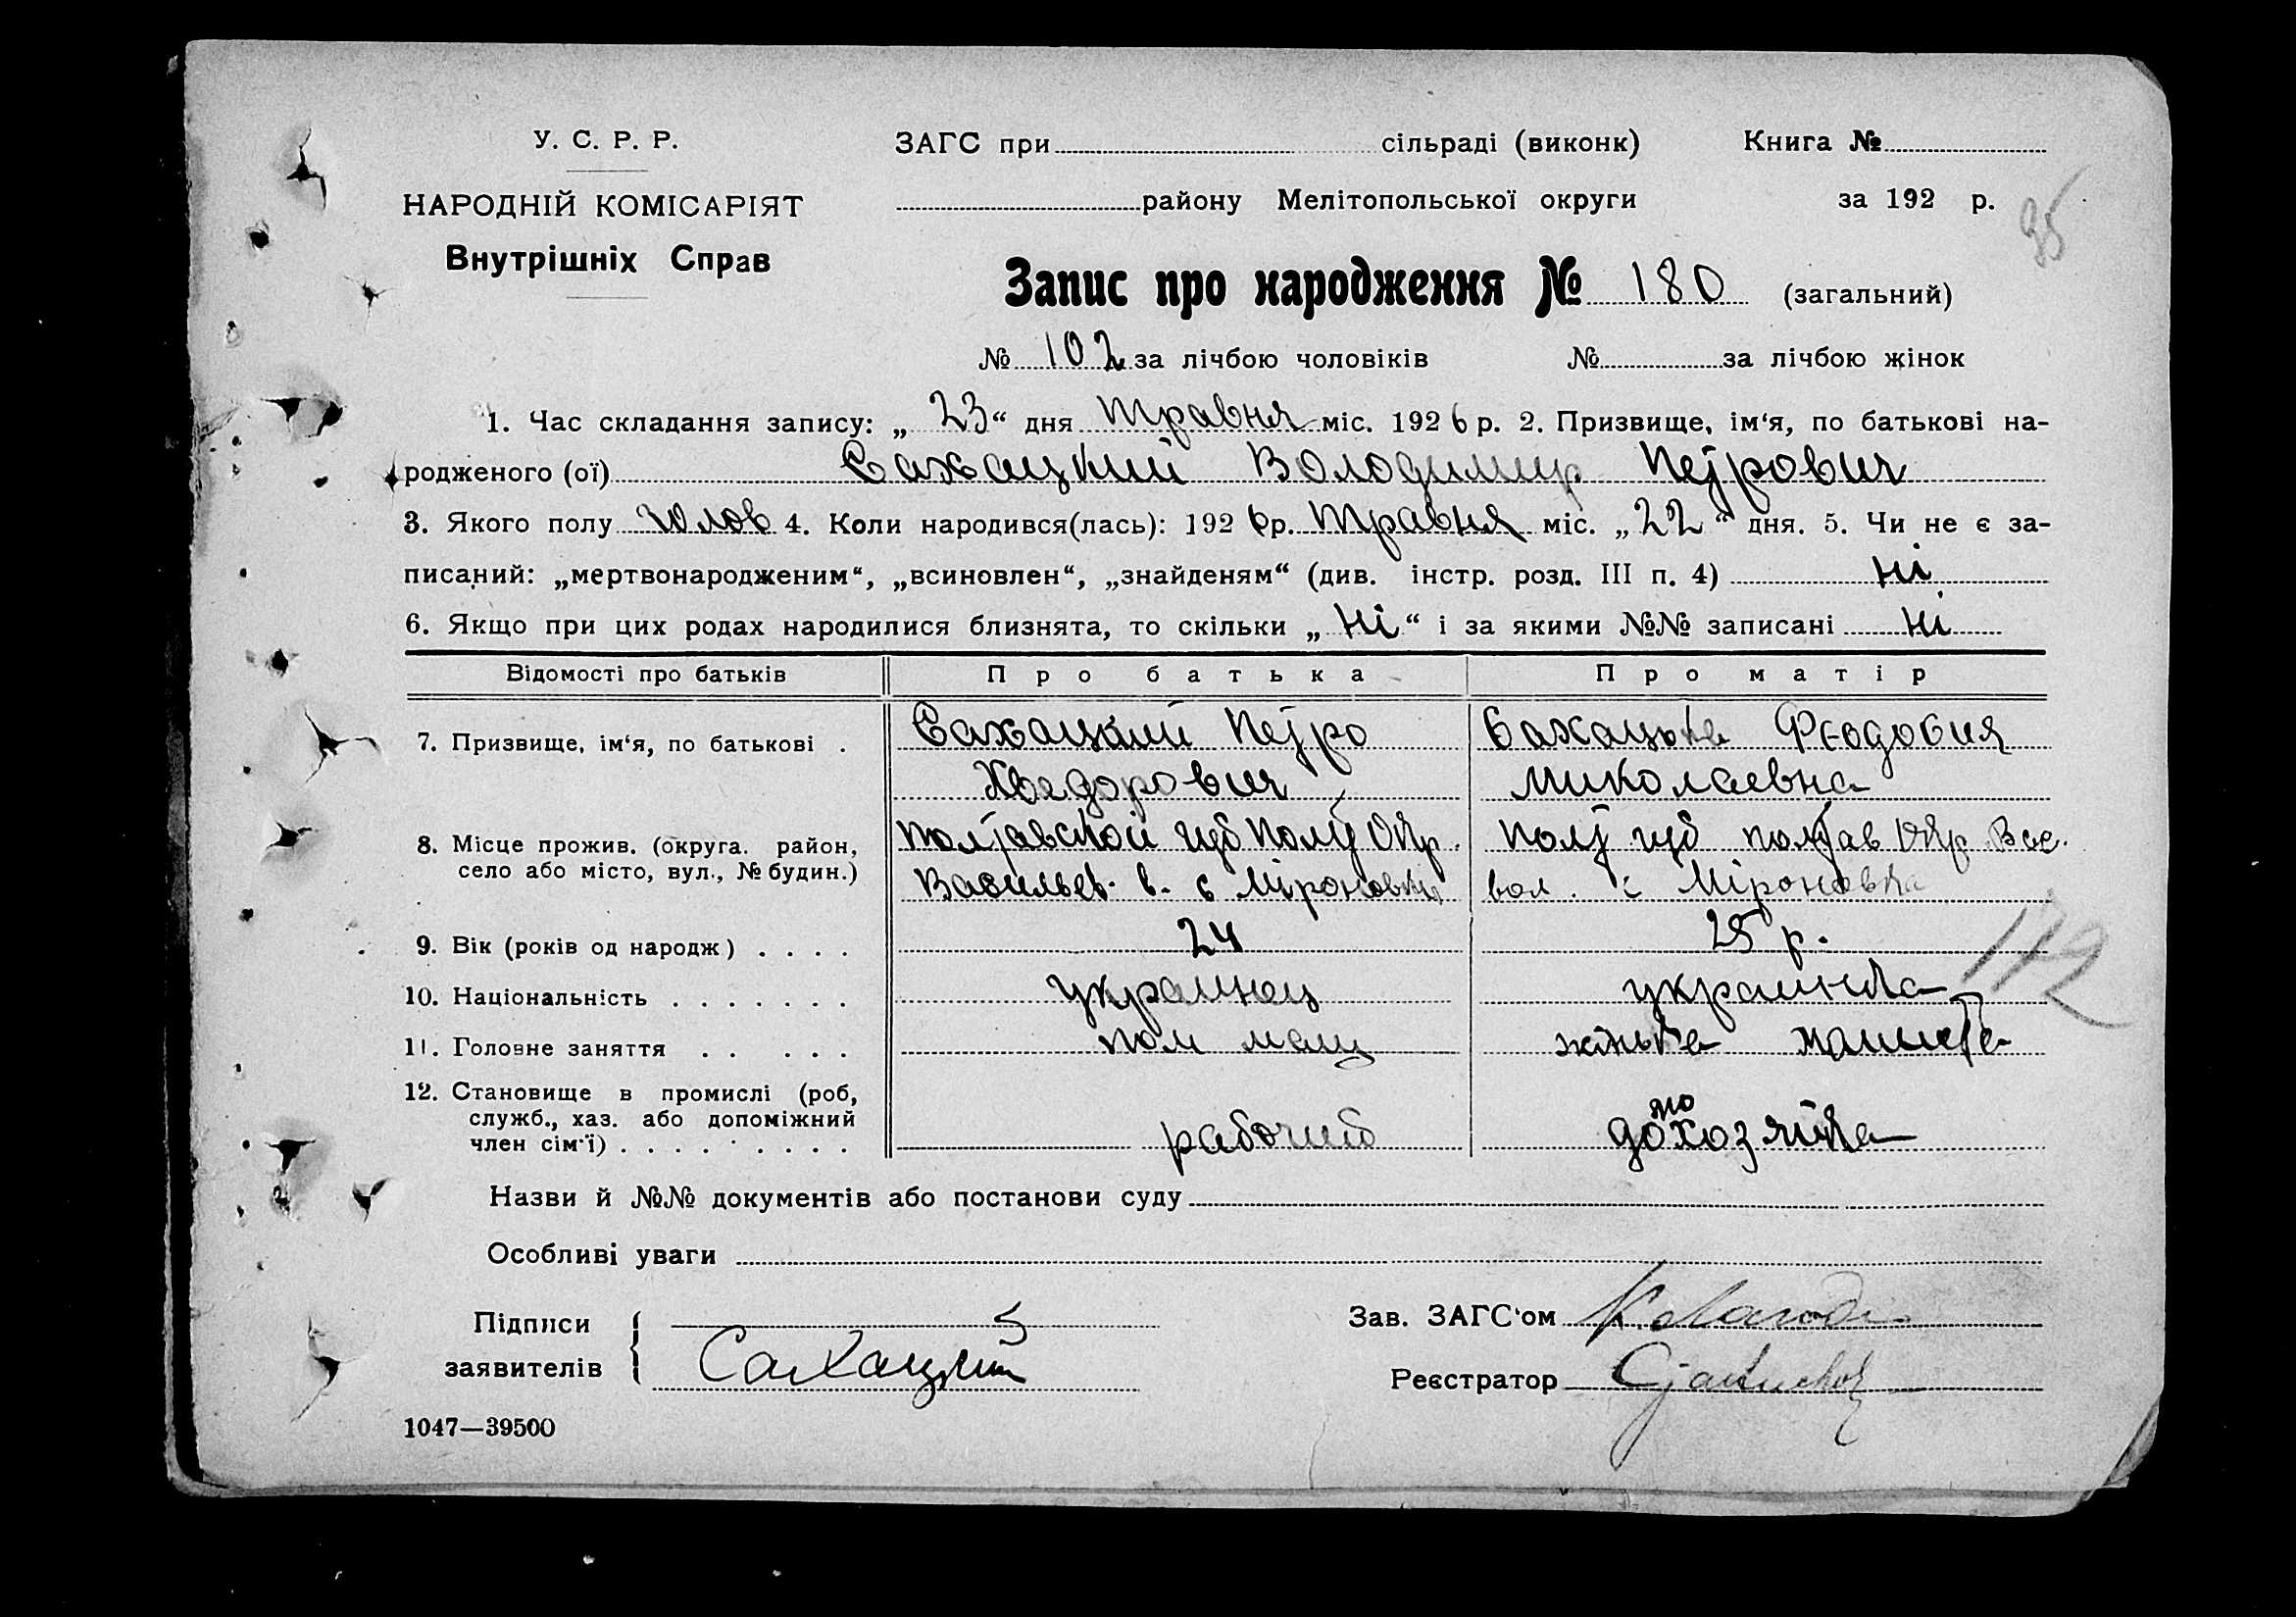 У. С. Р. Р.
НАРОДНІЙ КОМІСАРІЯТ
Внутрішніх Справ
ЗАГС при сільраді (виконк) Книга №
району Мелітопольської округи за 192 р.
95
Запис про народження № 180 (загальний)
№ 102 за лічбою чоловіків № за лічбою жінок
1. Час складання запису: „23“ дня травня міс. 1926 р. 2. Призвище, ім‘я, по батькові на-
родженого (ої) Сахацкий Володимир Петрович
3. Якого полу чолов 4. Коли народився(лась): 1926 р. травня міс. „22“ дня. 5. Чи не є за-
писаний: „мертвонародженим“, „всиновлен“, „знайденям“ (див. інстр. розд. III п. 4) ні
6. Якщо при цих родах народилися близнята, то скільки „ні“ і за якими №№ записані ні
Відомості про батьків Про батька Про матір
7. Призвище, ім‘я, по батькові . Сахацкий Петро Сахацька Феодосия
Хведорович Миколаевна
8. Місце прожив. (округа. район, Полтавской губ Полт Окр. Полт губ полтав Окр Вас.
село або місто, вул., № будин.) Васильев. в. с Міроновки вол. с Міроновка
9. Вік (років од народж) . . . . 24 25 р.
112
10. Національність . . . . . . . украинец украинка
11. Головне заняття . . . . . пом маш жінка машиста
12. Становище в промислі (роб,
служб., хаз. або допоміжний
член сім‘ї) . . . . . . . . рабочий домохозяйка
Назви й №№ документів або постанови суду
Особливі уваги
Підписи
заявителів Сахацкий
Зав. ЗАГС‘ом
Реєстратор
1047—39500